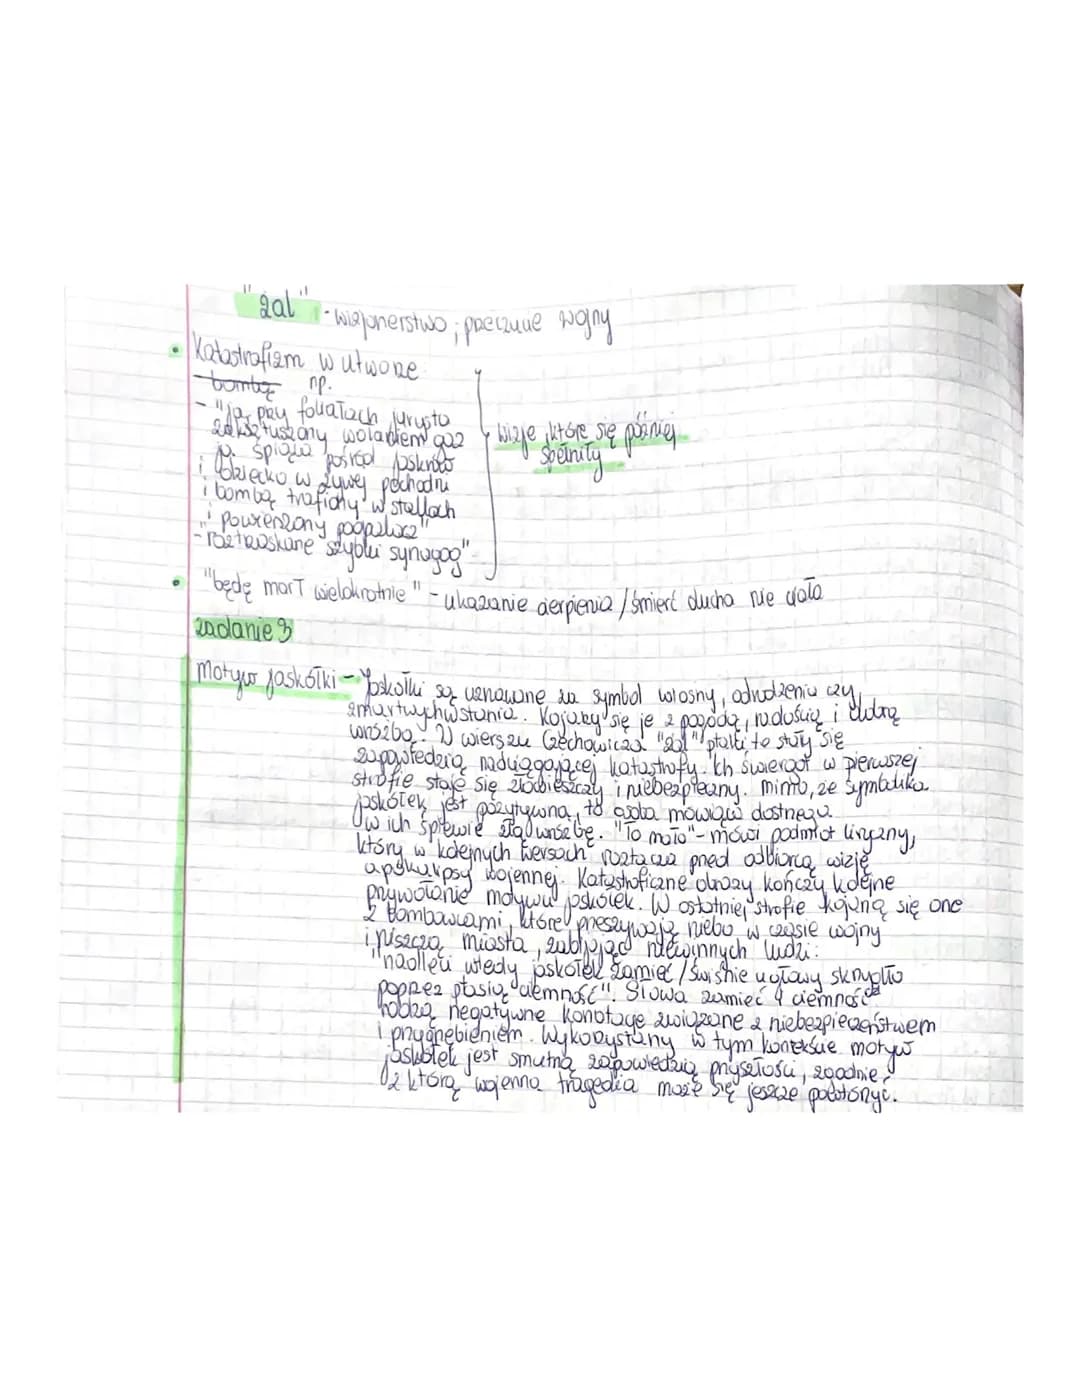 "żal" - wizjonerstwo; przeczucie wojny
• Katastrofizm w utworze
bombą np.
- "ja pny foliałach jurysta
zakrztuszony wołaniem gaz
ja śpiąca pośród jaskrów
i dziecko w żywej pochodni
i bombą trafiony w stallach
i powieszony podpalacz"
- roztrzaskane szybki synagog"
wizje, które się później
spełniły
• "będę marł wielokrotnie" - ukazanie cierpienia / śmierć ducha nie ciała
zadanie 3
Motyw jaskółki - Jaskółki są uznawane za symbol wiosny, odrodzenia czy
zmartwychwstania. Kojarzy się je z pogodą, radością i dobrą
wróżbą. W wierszu Czechowicza "żal" ptaki te stały się
zapowiedzią nadciągającej katastrofy. Ich świergot w pierwszej
strofie staje się złowieszczy i niebezpieczny. mimo, że symbolika
jaskółek jest pozytywna, to osoba mówiąca dostrzega
w ich śpiewie złą wróżbę. "To mało" - mówi podmiot liryczny,
który w kolejnych wersach roztacza przed odbiorcą wizję
apokalipsy wojennej. Katastroficzne obrazy kończy kolejne
przywołanie motywu jaskółek. W ostatniej strofie kojarzą się one
z bombowcami, które przeszywają niebo w czasie wojny
i niszczą miasta, zabijając niewinnych ludzi:
"nadleci wtedy jaskółek zamieć / świśnie u głowy skrzydło
poprzez ptasią ciemność". Słowa zamieć i ciemność
rodzą negatywne konotacje związane z niebezpieczeństwem
i przygnębieniem. Wykorzystany w tym kontekście motyw
jaskółek jest smutną zapowiedzią przyszłości, zgodnie
z którą wojenna tragedia może się jeszcze powtórzyć.